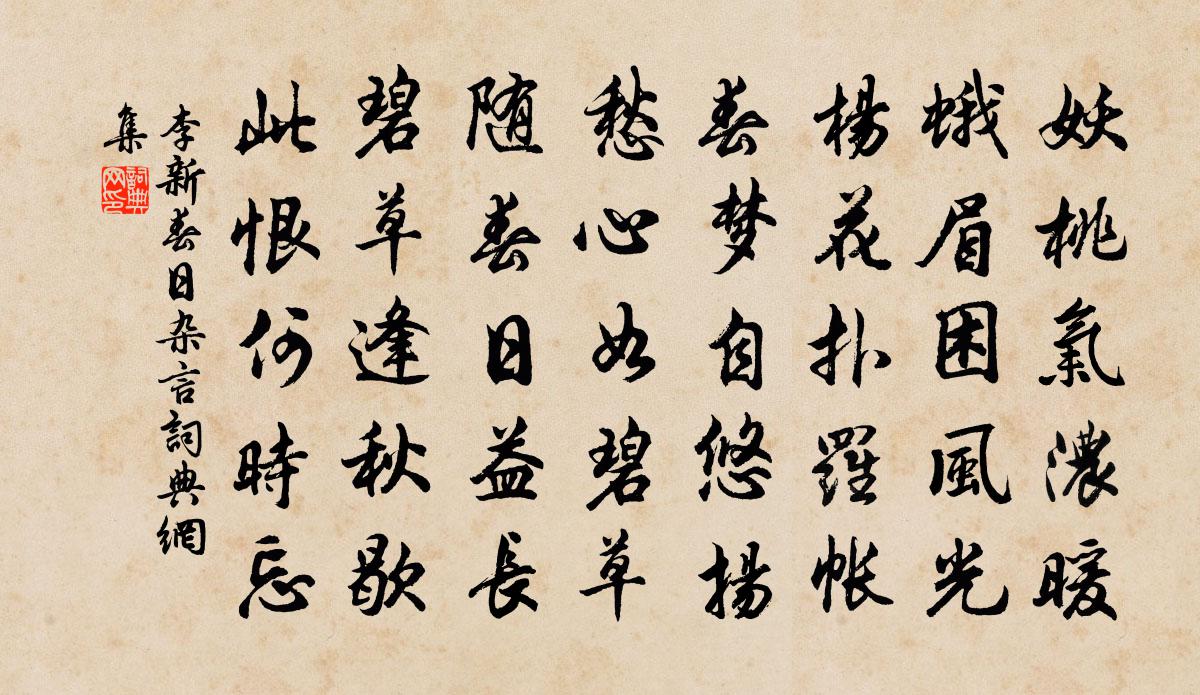 妖桃氣濃暖
蛾眉困風光
楊花扑羅帐
春梦自悠揚
愁心如碧草
随春日益長
碧草逢秋歇
此恨何時忘
李新春日杂言詞典網
集
詞典
网印